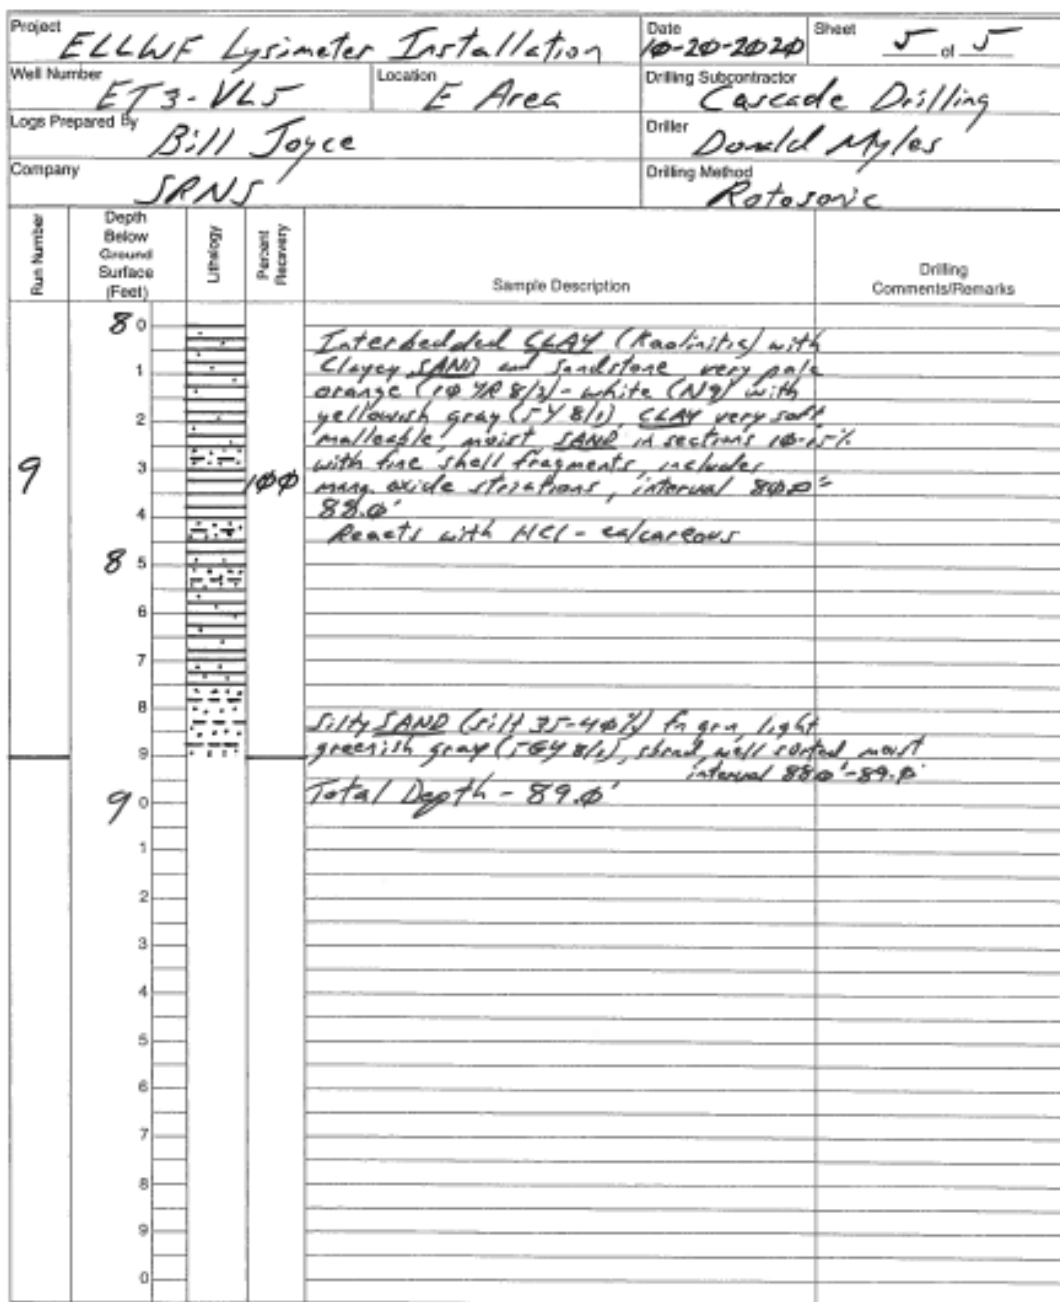 Project
ELLWF Lysimeter Installation
Date
10-20-2020
Sheet
5 of 5
Well Number
ET3-VL5
Location
E Area
Drilling Subcontractor
Cascade Drilling
Logs Prepared By
Bill Joyce
Driller
Donald Myles
Company
SRNS
Drilling Method
Rotosonic
Run Number
Depth Below Ground Surface (Feet)
Lithology
Percent Recovery
Sample Description
Drilling Comments/Remarks
80
Interbedded CLAY (Kaolinitic) with
1
Clayey SAND and sandstone very pale
orange (10 YR 8/2) - white (N9) with
2
yellowish gray (5Y 8/1), CLAY very soft
malleable, moist SAND in sections 10-15%
9
3
100
with fine shell fragments, includes
mang. oxide striations, interval 80.0'-
4
88.0'
Reacts with HCl - calcareous
85
6
7
8
Silty SAND (silt 35-40%) fn grn, light
greenish gray (5GY 8/1), sbrnd, well sorted, moist
9
interval 88.0'-89.0'
90
Total Depth - 89.0'
1
2
3
4
5
6
7
8
9
0